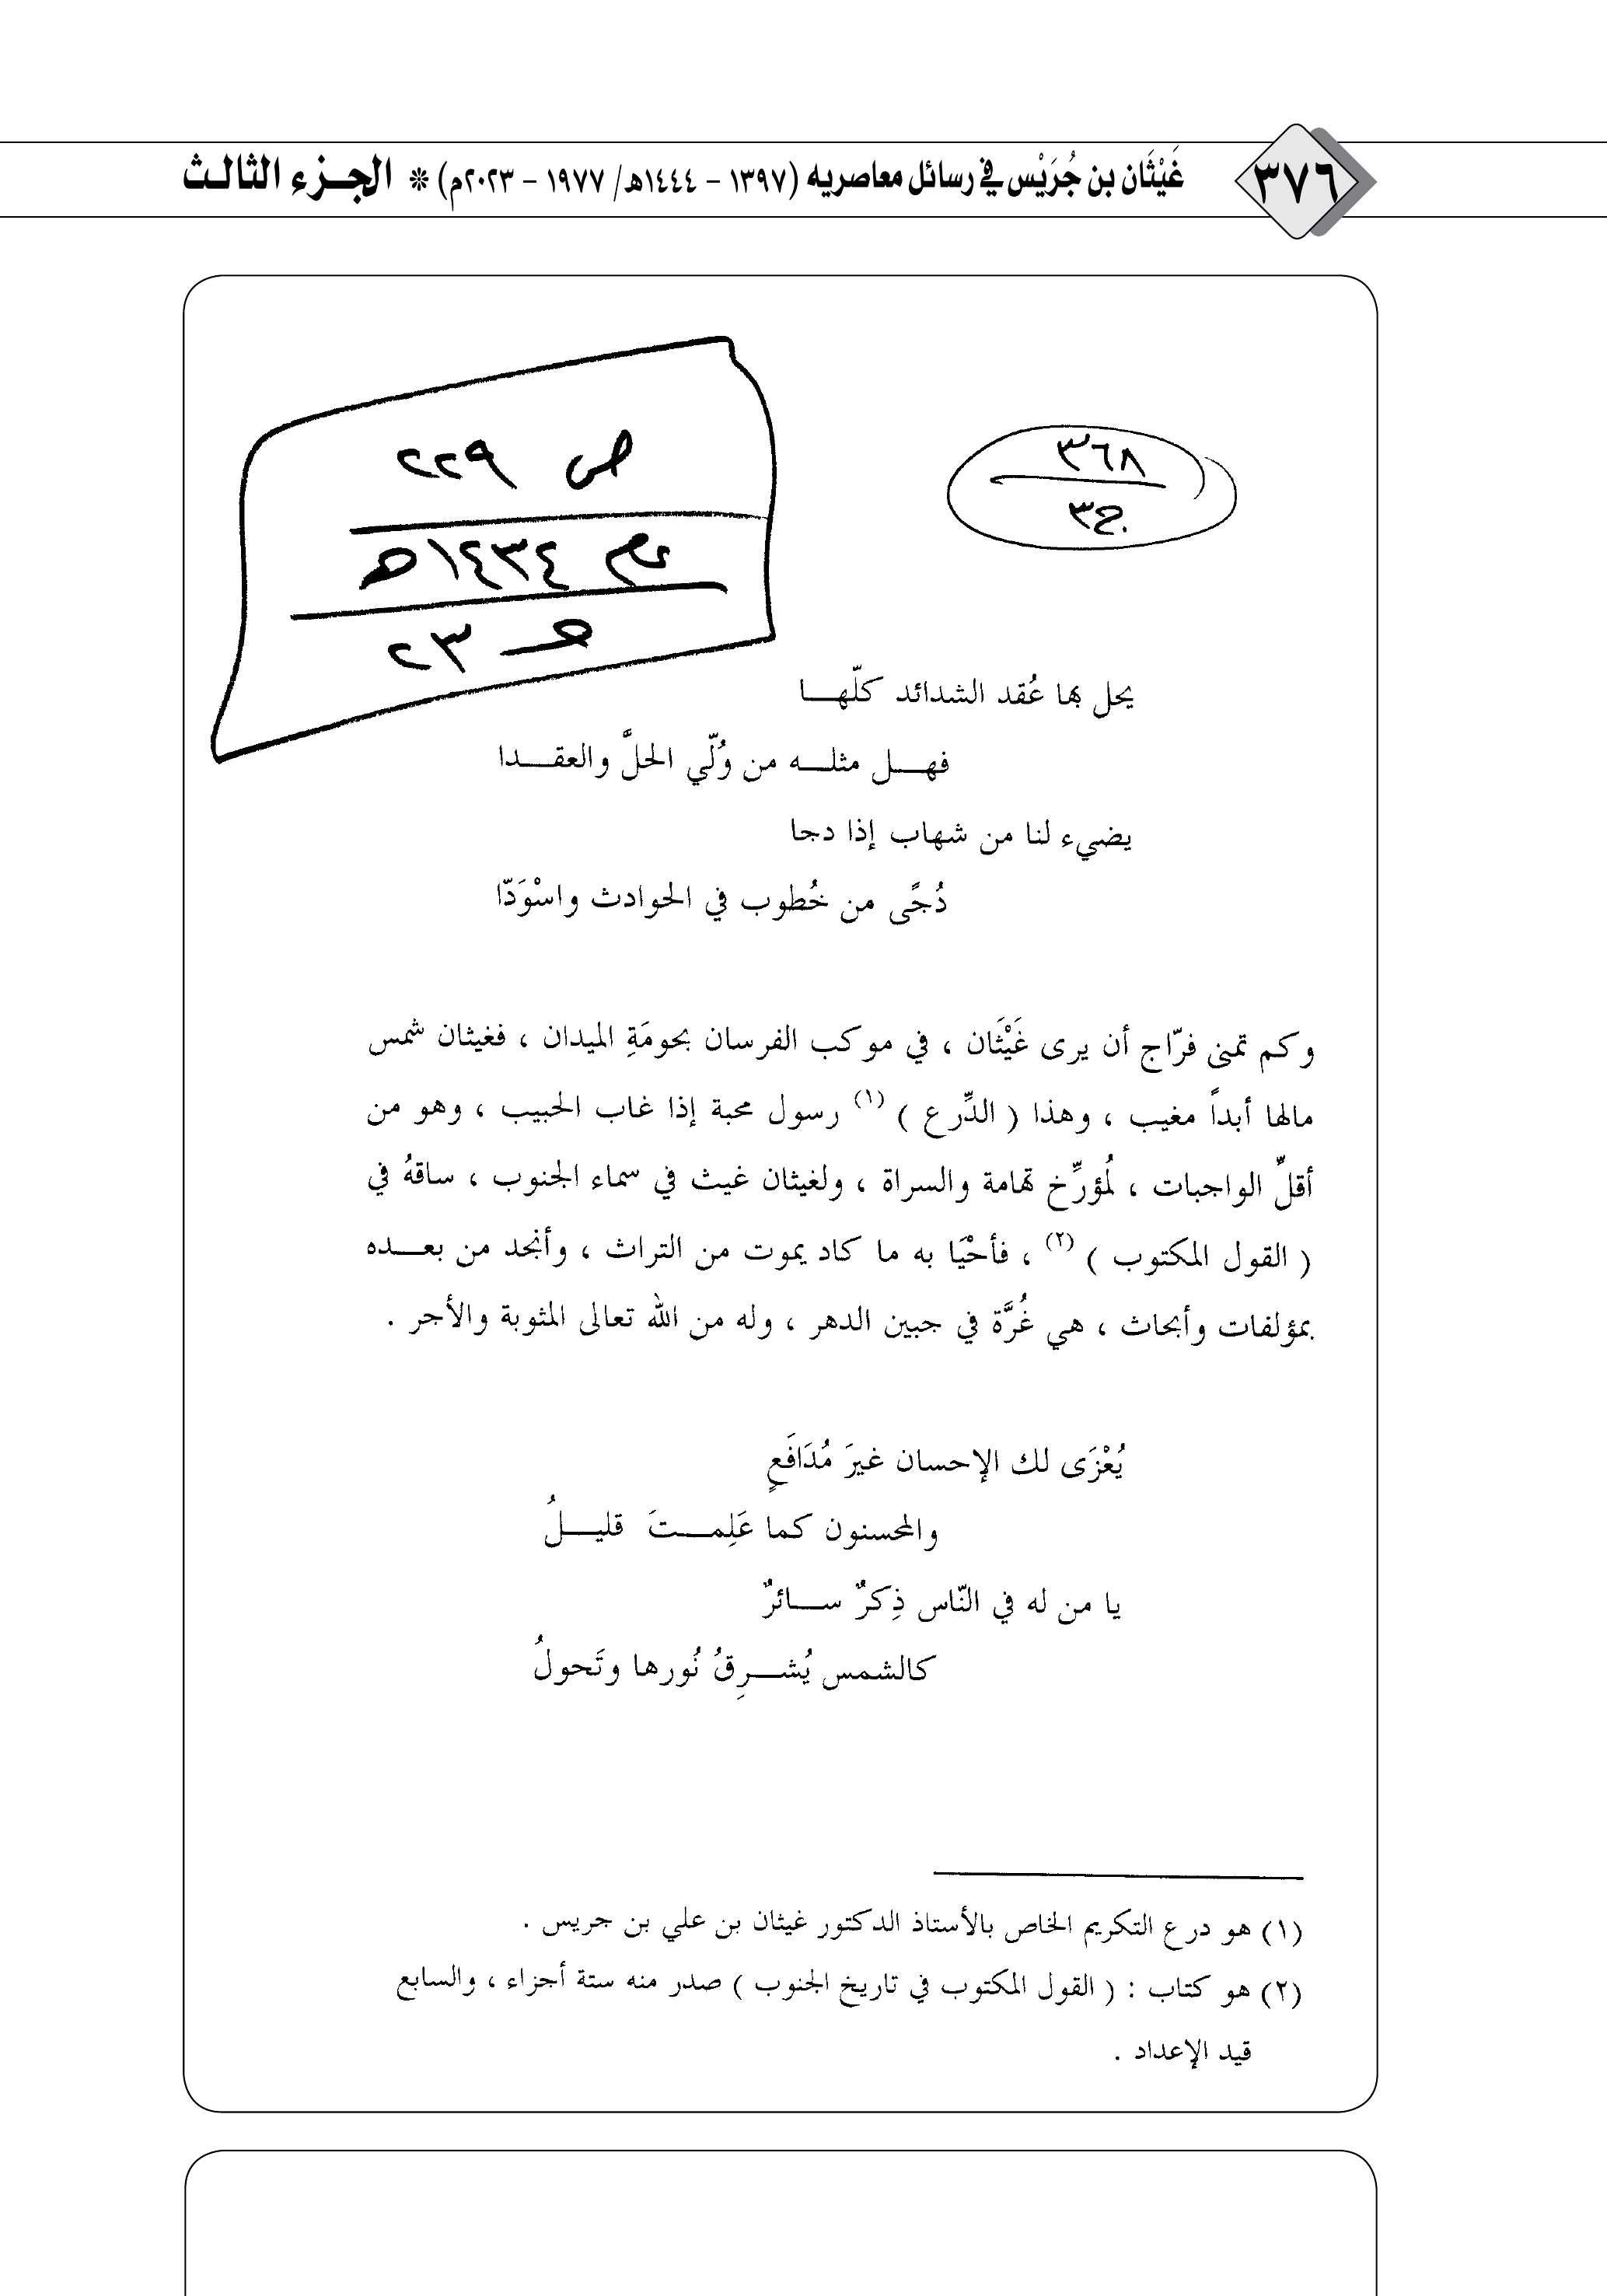 ٣٧٦
غَيْثَان بن جُرَيْس في رسائل معاصريه (١٣٩٧ - ١٤٤٤هـ/ ١٩٧٧ - ٢٠٢٣م) * الجـزء الثالـث
٣٦٨
ج٣
ص ٢٢٩
عام ١٤٣٤هـ
هـ ٢٣
يحل بها عُقد الشدائد كلّهـــا
فهـــل مثلـــه من وُلّي الحلَّ والعقـــدا
يضيء لنا من شهاب إذا دجا
دُجًى من خُطوب في الحوادث واسْوَدّا
وكم تمنى فرّاج أن يرى غَيْثَان ، في موكب الفرسان بحومَةِ الميدان ، فغيثان شمس
مالها أبداً مغيب ، وهذا ( الدِّرع ) (١) رسول محبة إذا غاب الحبيب ، وهو من
أقلِّ الواجبات ، لمُؤرِّخ تهامة والسراة ، ولغيثان غيث في سماء الجنوب ، ساقهُ في
( القول المكتوب ) (٢) ، فأحْيَا به ما كاد يموت من التراث ، وأنجد من بعـــده
بمؤلفات وأبحاث ، هي غُرَّة في جبين الدهر ، وله من الله تعالى المثوبة والأجر .
يُعْزَى لك الإحسان غيرَ مُدَافَعٍ
والمحسنون كما عَلِمـــتَ قليـــلُ
يا من له في النّاس ذِكرٌ ســـائرٌ
كالشمس يُشـــرِقُ نُورها وتَحولُ
(١) هو درع التكريم الخاص بالأستاذ الدكتور غيثان بن علي بن جريس .
(٢) هو كتاب : ( القول المكتوب في تاريخ الجنوب ) صدر منه ستة أجزاء ، والسابع
قيد الإعداد .